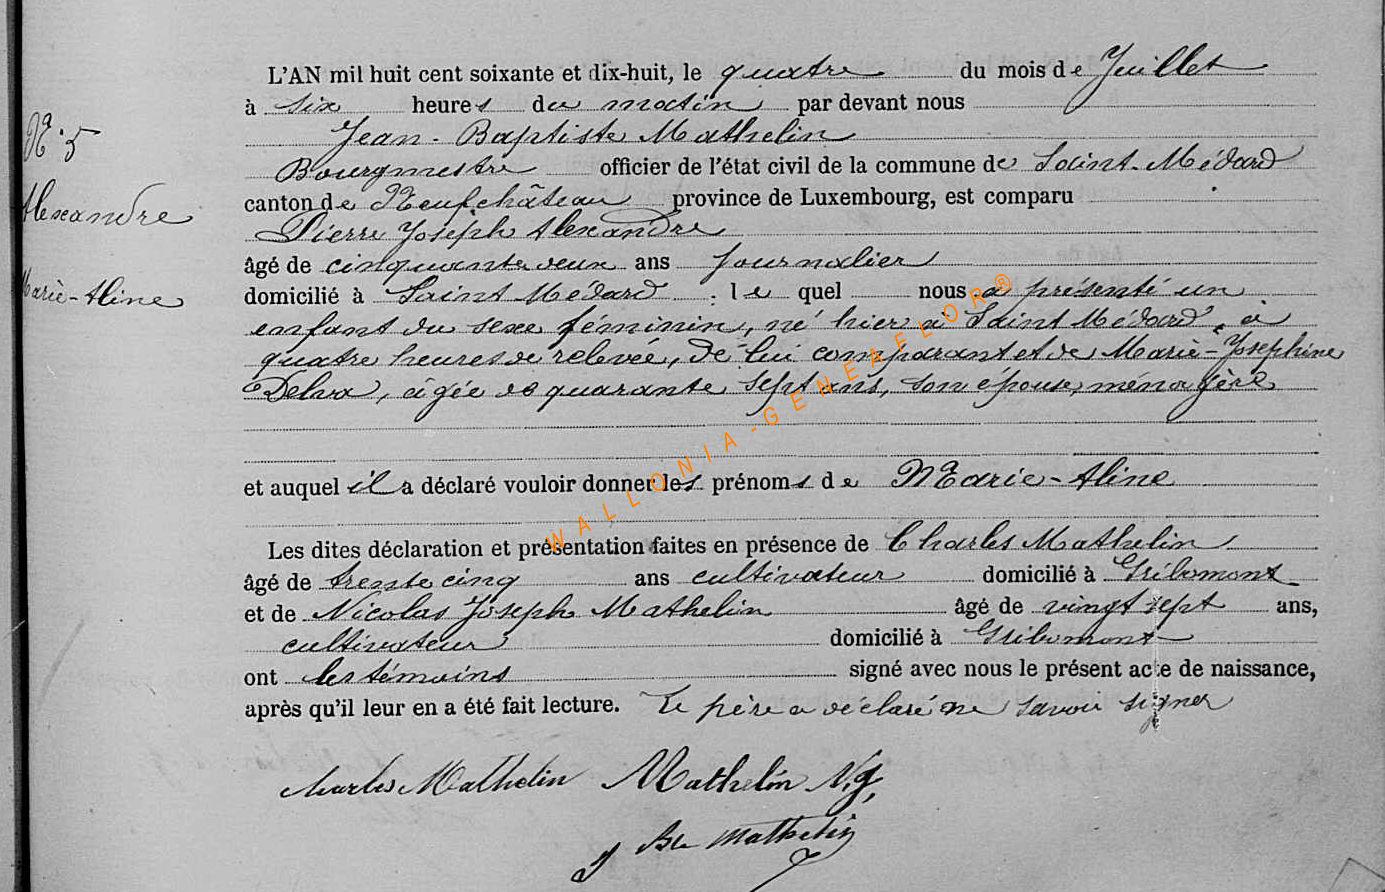 L'AN mil huit cent soixante et dix-huit, le quatre du mois de Juillet
à six heures du matin par devant nous
Jean-Baptiste Mathelin
Bourgmestre officier de l'état civil de la commune de Saint-Médard
canton de Neufchâteau province de Luxembourg, est comparu
Pierre Joseph Alexandre
âgé de cinquante deux ans journalier
domicilié à Saint Médard, lequel nous a présenté un
enfant du sexe féminin, né hier à Saint Médard, à
quatre heures de relevée, de lui comparant et de Marie-Joséphine
Delva, âgée de quarante sept ans, son épouse, ménagère
et auquel il a déclaré vouloir donner les prénoms de Marie-Aline
Les dites déclaration et présentation faites en présence de Charles Mathelin
âgé de trente cinq ans cultivateur domicilié à Gribomont
et de Nicolas Joseph Mathelin âgé de vingt sept ans,
cultivateur domicilié à Gribomont
ont les témoins signé avec nous le présent acte de naissance,
après qu'il leur en a été fait lecture. Le père a déclaré ne savoir signer
Charles Mathelin Mathelin N.j.
J Bte Mathelin
N° 5
Alexandre
Marie-Aline
WALLONIA-GENEAFLOR®